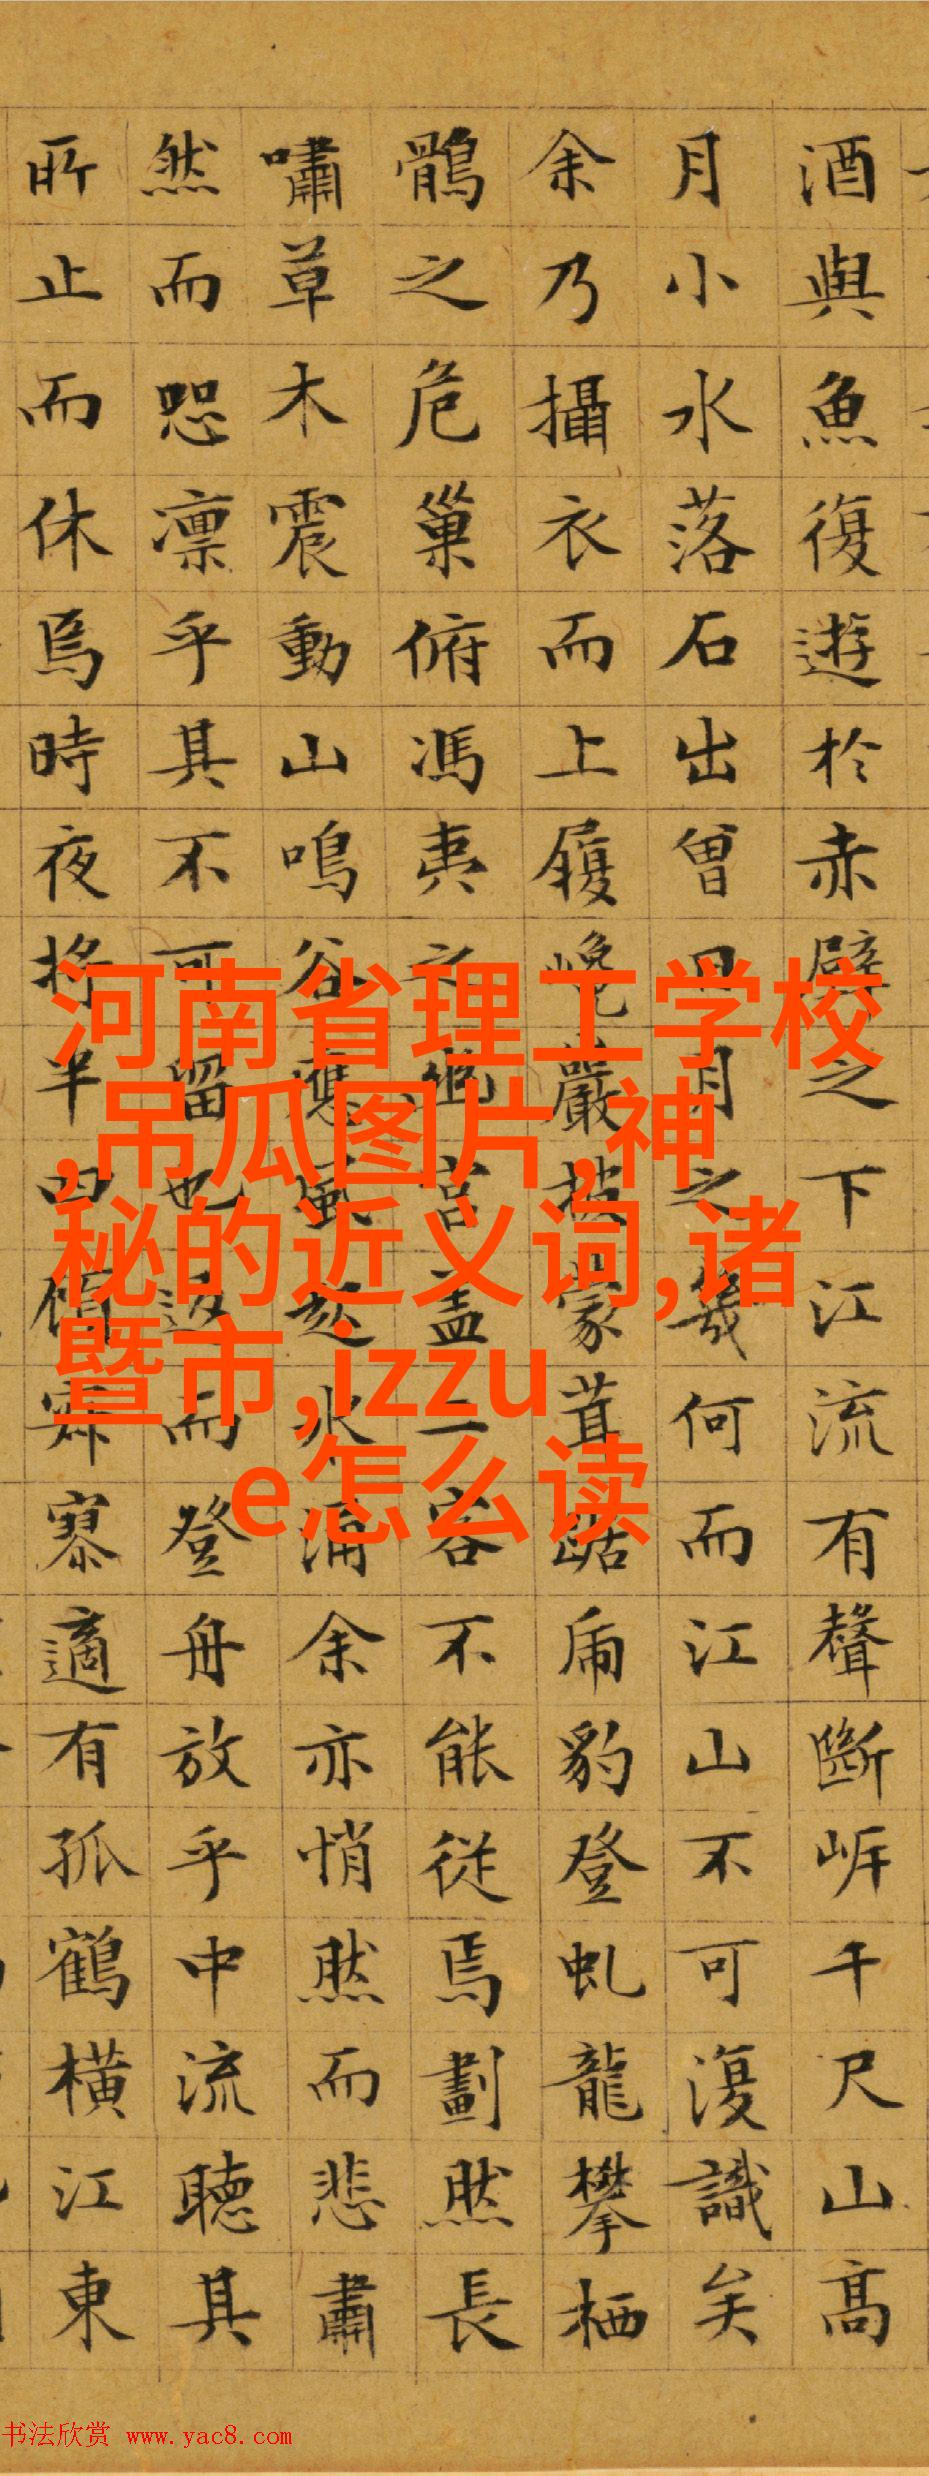 酒與魚復遊於赤壁之下江流有聲斷岸千尺山高
月小水落石出曾日月之幾何而江山不可復識矣
余乃攝衣而上履巉巖披蒙茸踞虎豹登虬龍攀栖
鶻之危巢俯馮夷之幽宮盖二客不能從焉劃然長
嘯草木震動山鳴谷應風起水涌余亦悄然而悲肅
然而恐凛乎其不可留也返而登舟放乎中流聽其
所止而休焉時夜將半四顧寂寥適有孤鶴橫江東
河南省理工学校
,吊瓜图片,神
秘的近义词,诸
暨市,izzu
e怎么读
书法欣赏 www.yac8.com